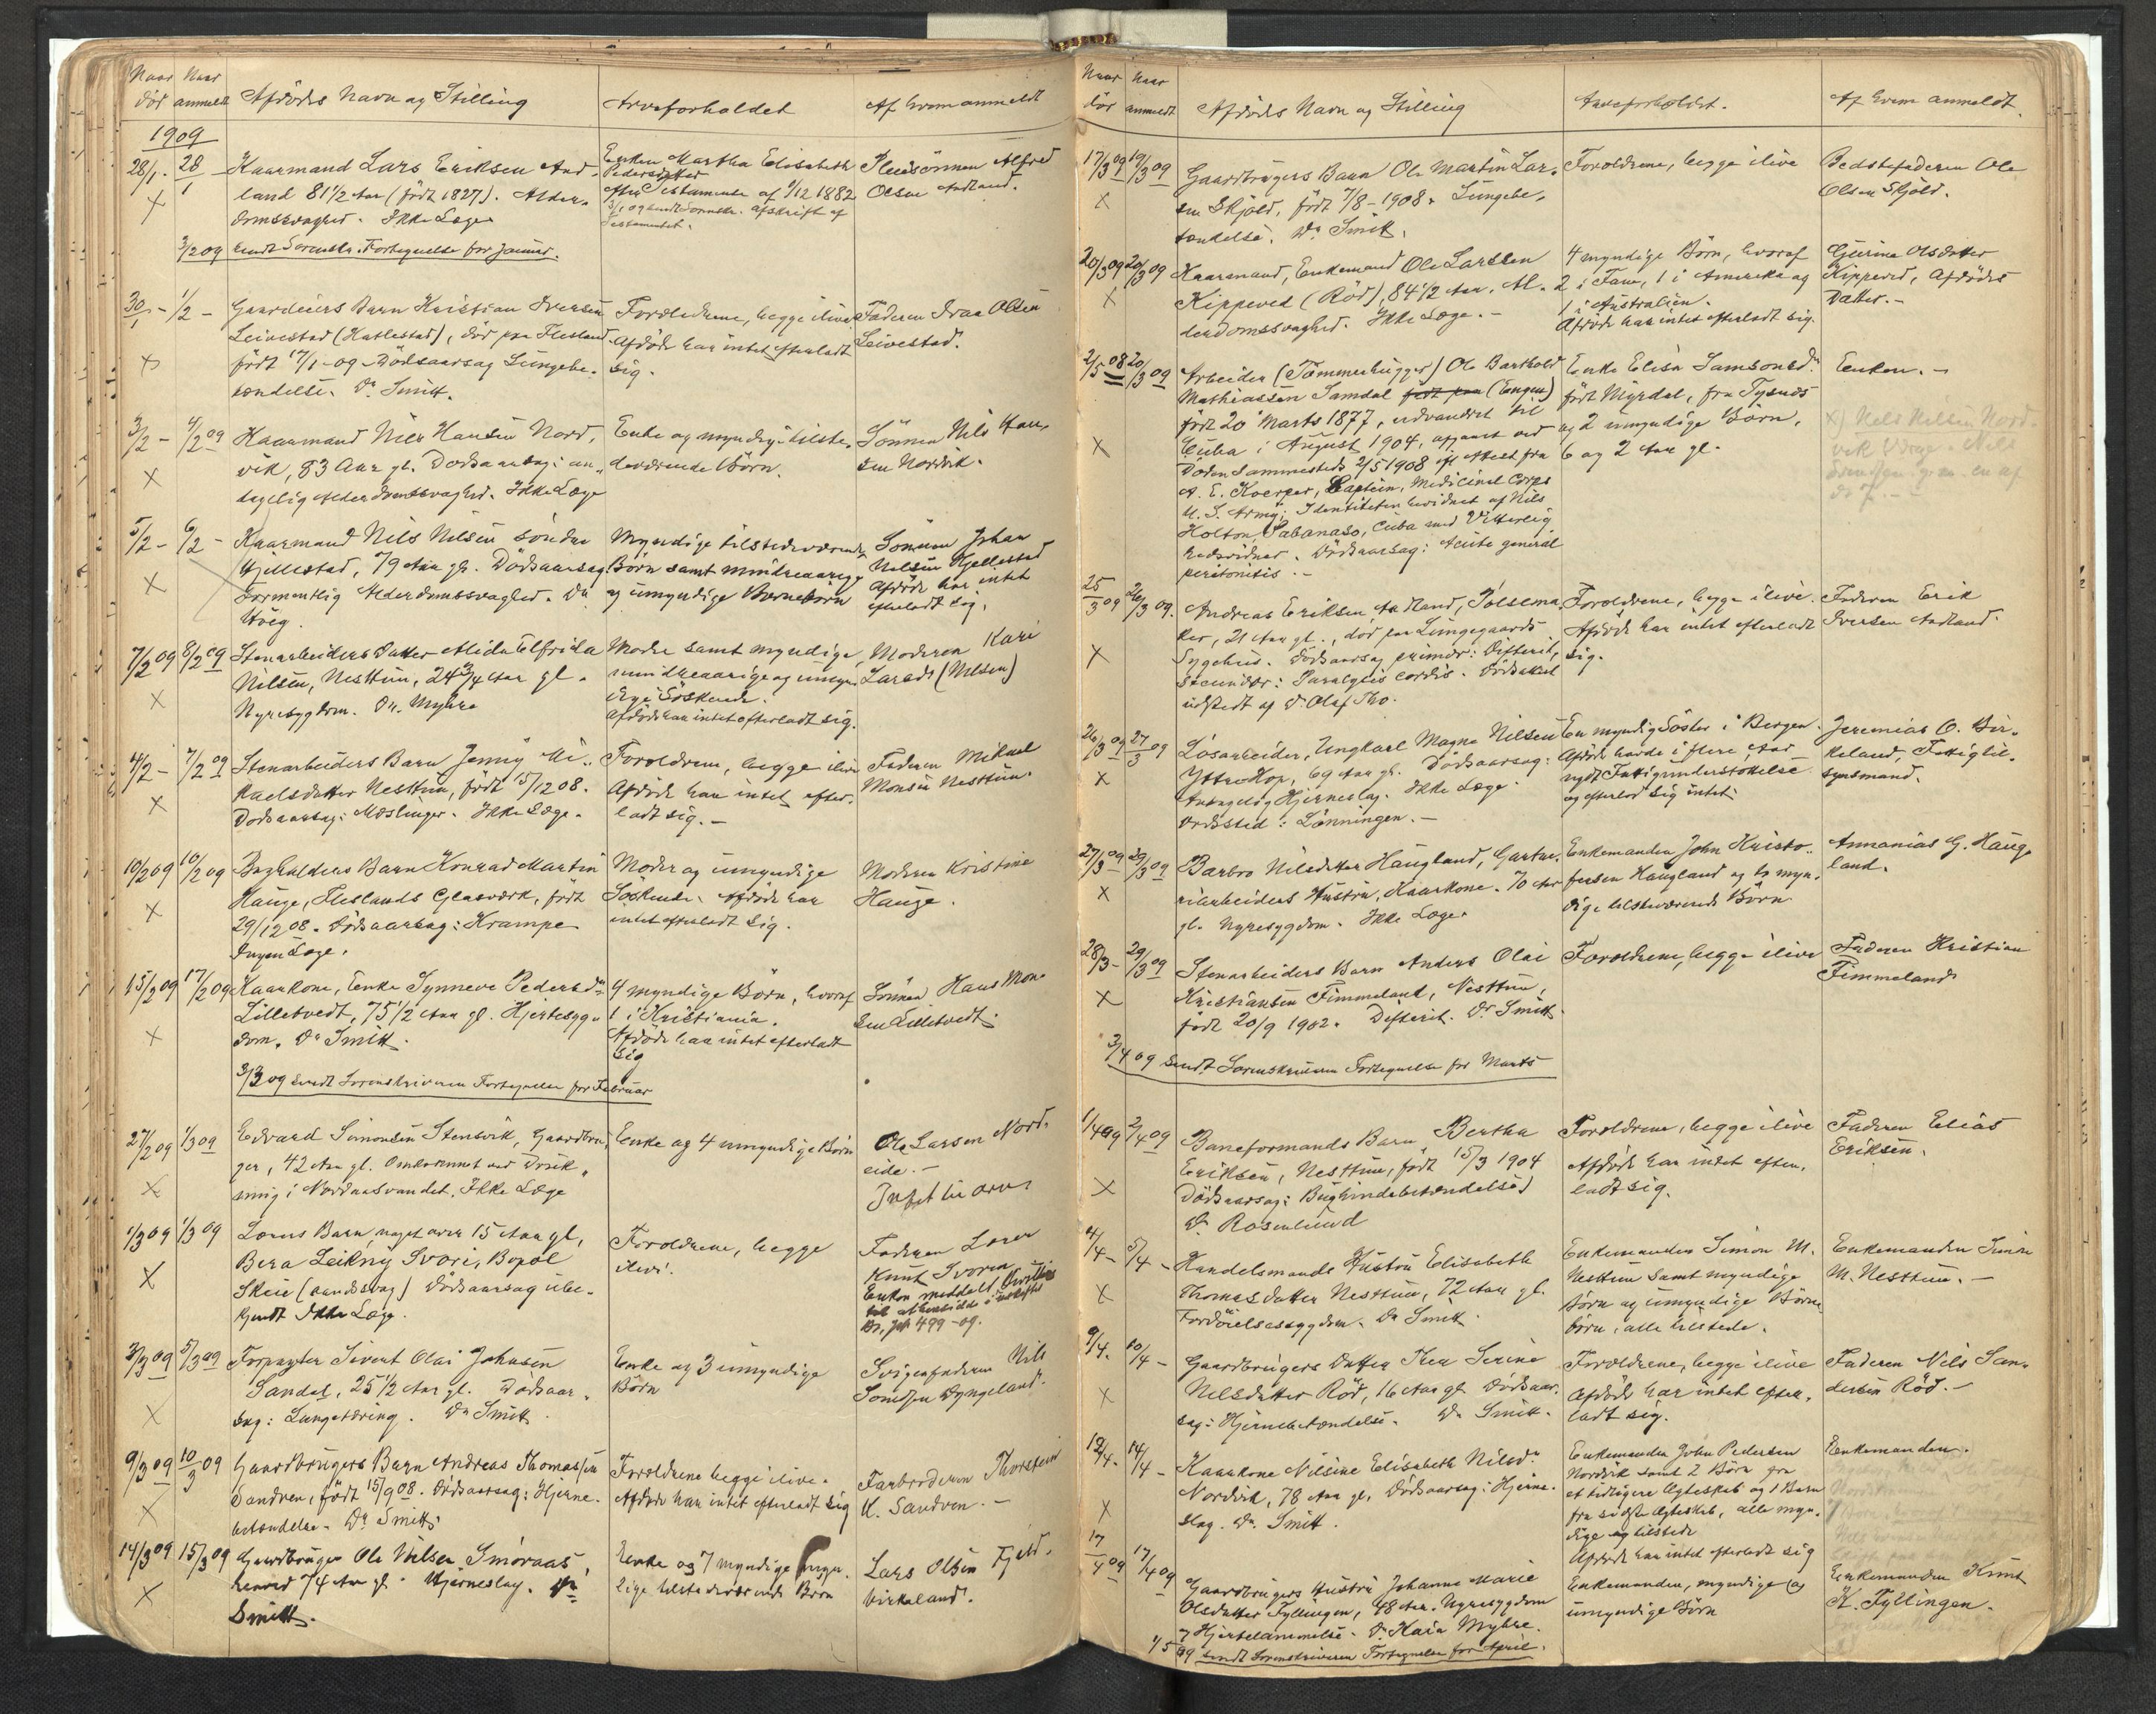 Naar Naar
död anmeldt Afdödes Navn og Stilling Arveforholdet Af hvem anmeldt
1909
28/1 - 28/1 - Kaarmand Lars Eriksen Aad-
land 81 1/2 Aar (född 1827). Alder-
domssvaghed. Ikke Læge
Enken Martha Elisabeth
Pedersdatter
efter Testamente af 9/12 1882
afskrift af
Testamentet.
Pleiesönnen Alfred
Olsen Aadland.
3/2 09 sendt Sorenskr. Fortegnelse for Januar.
30/1 - 1/2 - Gaardeiers Barn Kristian Iversen
Leivestad (Hatlestad), död paa Flesland
född 17/1 - 09 - Dödsaarsag Lungebe-
tændelse. Dr Smitt.
Forældrene, begge ilive
Afdöde har intet efterladt
sig.
Faderen Ivar Olsen
Leivestad.
3/2 - 4/2 09 Kaarmand Nils Hansen Nord-
vik, 83 Aar gl. Dödsaarsag: an-
tagelig Alderdomssvaghed. Ikke Læge
Enke og myndige tilste-
deværende Börn.
Sönnen Nils Han-
sen Nordvik.
5/2 - 6/2 - Kaarmand Nils Nilsen söndre
Hjellestad, 79 Aar gl. Dödsaarsag:
formentlig Alderdomssvaghed. Dr
Höeg.
Myndige tilstedeværende
Börn samt mindreaarige
og umyndige Barnebörn
Sönnen Johan
Nilsen Hjellestad
Afdöde har intet
efterladt sig.
7/2 09 8/2 09 Stenarbeiders Datter Alida Elfrida
Nilsen, Nesttun, 24 3/4 Aar gl.
Nyresygdom. Dr. Myhre
Moder samt myndige,
mindreaarige og umyn-
dige Söskende.
Afdöde har intet efterladt sig.
Moderen Kari
Larsdr (Nilsen)
4/2 - 7/2 09 Stenarbeiders Barn Jenny Mi-
kaelsdatter Nesttun, född 15/12 08.
Dödsaarsag: Mæslinger. Ikke Læge.
Forældrene, begge ilive
Afdöde har intet efter-
ladt sig. -
Faderen Mikael
Monsen Nesttun.
10/2 09 10/2 09 Bogholders Barn Konrad Martin
Hauge, Fleslands Glasværk, född
29/12 08. Dödsaarsag: Krampe
Ingen Læge.
Moder og umyndige
Söskende. Afdöde har
intet efterladt sig.
Moderen Kristine
Hauge.
15/2 09 17/2 09 Kaarkone, Enke Synneve Pedersdr
Lilletvedt, 75 1/2 Aar gl. Hjertesyg-
dom. Dr Smitt.
4 myndige Börn, hvoraf
1 i Kristiania.
Afdöde har intet efterladt
sig
Sönnen Hans Mon-
sen Lilletvedt.
3/3 09 sendt Sorenskriveren Fortegnelse for Februar
27/2 09 1/3 09 Edvard Simonsen Stensvik, Gaardbru-
ger, 42 Aar gl. Omkommet ved Druk-
ning i Nordaasvandet. Ikke Læge
Enke og 4 umyndige Börn
Ole Larsen Nord-
eide. -
Intet til arv
1/3 09 1/3 09 Barn, noget over 15 Aar gl,
Bera Leikny Svori, Bopæl
Skeie (aandssvag) Dödsaarsag ube-
kjendt Ikke Læge.
Forældrene, begge
ilive.
Faderen
Knut Svoren
Enken meddelt
499-09.
3/3 09 5/3 09 Forpagter Sivert Olai Johnsen
Sandal, 25 1/2 Aar gl. Dödsaar-
sag: Lungetæring. Dr Smitt.
Enke og 3 umyndige
Börn
Svigerfaderen Nils
Dyngeland.
9/3 09 10/3 09 Gaardbrugers Barn Andreas Thomassen
Sandven, född 15/9 08. Dödsaarsag: Hjerne-
betændelse. Dr Smitt.
Forældrene begge ilive.
Afdöde har intet efterladt sig
Farbroderen Thorstein
K. Sandven. -
14/3 09 15/3 09 Gaardbruger Ole Nilsen Smöraas,
henved 74 Aar gl. Hjerneslag. Dr
Smitt.
Enke og 7 myndige
tilstedeværende Börn
Lars Olsen Fjeld-
birkeland.
Naar Naar
död anmeldt Afdödes Navn og Stilling Arveforholdet. Af hvem anmeldt
17/3 09 19/3 09 Gaardbrugers Barn Ole Martin Lar-
sen Skjold, född 7/8 - 1908. Lungebe-
tændelse. Dr Smitt.
Forældrene, begge ilive
Bedstefaderen Ole
Olsen Skjold.
20/3 09 20/3 09 Kaarmand, Enkemand Ole Larssen
Kippeved (Röd), 84 1/2 Aar. Al-
derdomssvaghed. Ikke Læge. -
4 myndige Börn, hvoraf
2 i Fane, 1 i Amerika og
1 i Australien.
Afdöde har intet efterladt sig.
Gjerina Olsdatter
Kippeved, Afdödes
Datter. -
2/5 08 20/3 09 Arbeider (Tömmerhugger) Ole Barthold
Mathiassen Samdal (Engen)
född 20 Marts 1877, udvandret til
Cuba i August 1904, afgaaet ved
Döden sammesteds 2/5 1908 ifl. Attest fra
A. E. Koerper, Captein, Medicinal Corps
U. S. Army; Identiteten bevidnet af Nils
Holton, Sabanaso, Cuba med Vitterlig
hedsvidner. Dödsaarsag: Acute general
peritonitis. -
Enke Elisa Samsonsdr
född Myrdal, fra Tysnes
og 2 umyndige Börn,
6 og 2 Aar gl.
Enken. -
25/3 09 26/3 09. Andreas Eriksen Aadland, Pölsema-
ker, 21 Aar gl., död paa Lungegaards
Sygehus. Dödsaarsag primær: Difterit,
secundær: Paralysis cordis. Dödsattest
udstedt af Dr Olaf Tho.
Forældrene, begge ilive.
Afdöde har intet efterladt
sig.
Faderen Erik
Iversen Aadland.
26/3 09 27/3 09 Lösarbeider, Ungkarl Magne Nilsen
Ytre-Hop, 69 Aar gl. Dödsaarsag:
Antagelig Hjerneslag. Ikke Læge.
Dödssted: Lönningen. -
En myndig Söster i Bergen.
Afdöde havde i flere Aar
nydt Fattigunderstöttelse
og efterlod sig intet.
Jeremias O. Bir-
keland, Fattigtil-
synsmand.
27/3 09 29/3 09 Barbro Nilsdatter Haugland, Gartne-
riarbeiders Hustru, Kaarkone. 70 Aar
gl. Nyresygdom. Ikke Læge.
Enkemanden John Kristo-
fersen Haugland og to myn-
dige tilstedeværende Börn
Annanias G. Haug-
land.
28/3 - 29/3 09 Stenarbeiders Barn Anders Olai
Kristiansen Fimmeland, Nesttun,
född 20/9 1902. Difterit. Dr Smitt.
Forældrene, begge ilive
Faderen Kristian
Fimmeland
3/4 09 sendt Sorenskriveren Fortegnelse for Marts
1/4 09 2/4 09 Baneformands Barn Bertha
Eriksen, Nesttun, född 15/3 1904
Dödsaarsag: Bughindebetændelse
Dr Rosenlund
Forældrene, begge ilive
Afdöde har intet efter-
ladt sig.
Faderen Elias
Eriksen.
4/4 - 5/4 - Handelsmands Hustru Elisabeth
Thomasdatter Nesttun, 72 Aar gl.
Fordöielsessygdom. Dr Smitt.
Enkemanden Simon M.
Nesttun samt myndige
Börn og umyndige Börne-
börn, alle tilstede.
Enkemanden Simon
M. Nesttun. -
9/4 - 10/4 - Gaardbrugers Datter Thea Serine
Nilsdatter Röd, 16 Aar gl. Dödsaar-
sag: Hjernebetændelse. Dr Smitt.
Forældrene, begge ilive
Afdöde har intet efter-
ladt sig.
Faderen Nils San-
dersen Röd. -
12/4 - 14/4 - Kaarkone Nilsine Elisabeth Nilsdr
Nordvik, 78 Aar gl. Dödsaarsag: Hjerne-
slag. Dr. Smitt.
Enkemanden John Pedersen
Nordvik samt 2 Börn fra
et tidligere Ægteskab og 1 Barn
fra sidste Ægteskab, alle myn-
dige og tilstede
Afdöde har intet efterladt sig
Enkemanden.
17/4 09 17/4 09 Gaardbrugers Hustru Johanne Marie
Olsdatter Fyllingen, 48 Aar. Nyresygdom
& Hjertelammelse. Dr Kaia Myhre.
Enkemanden, myndige og
umyndige Börn
Enkemanden Knut
K. Fyllingen.
1/5 09 sendt Sorenskriveren Fortegnelse for April.